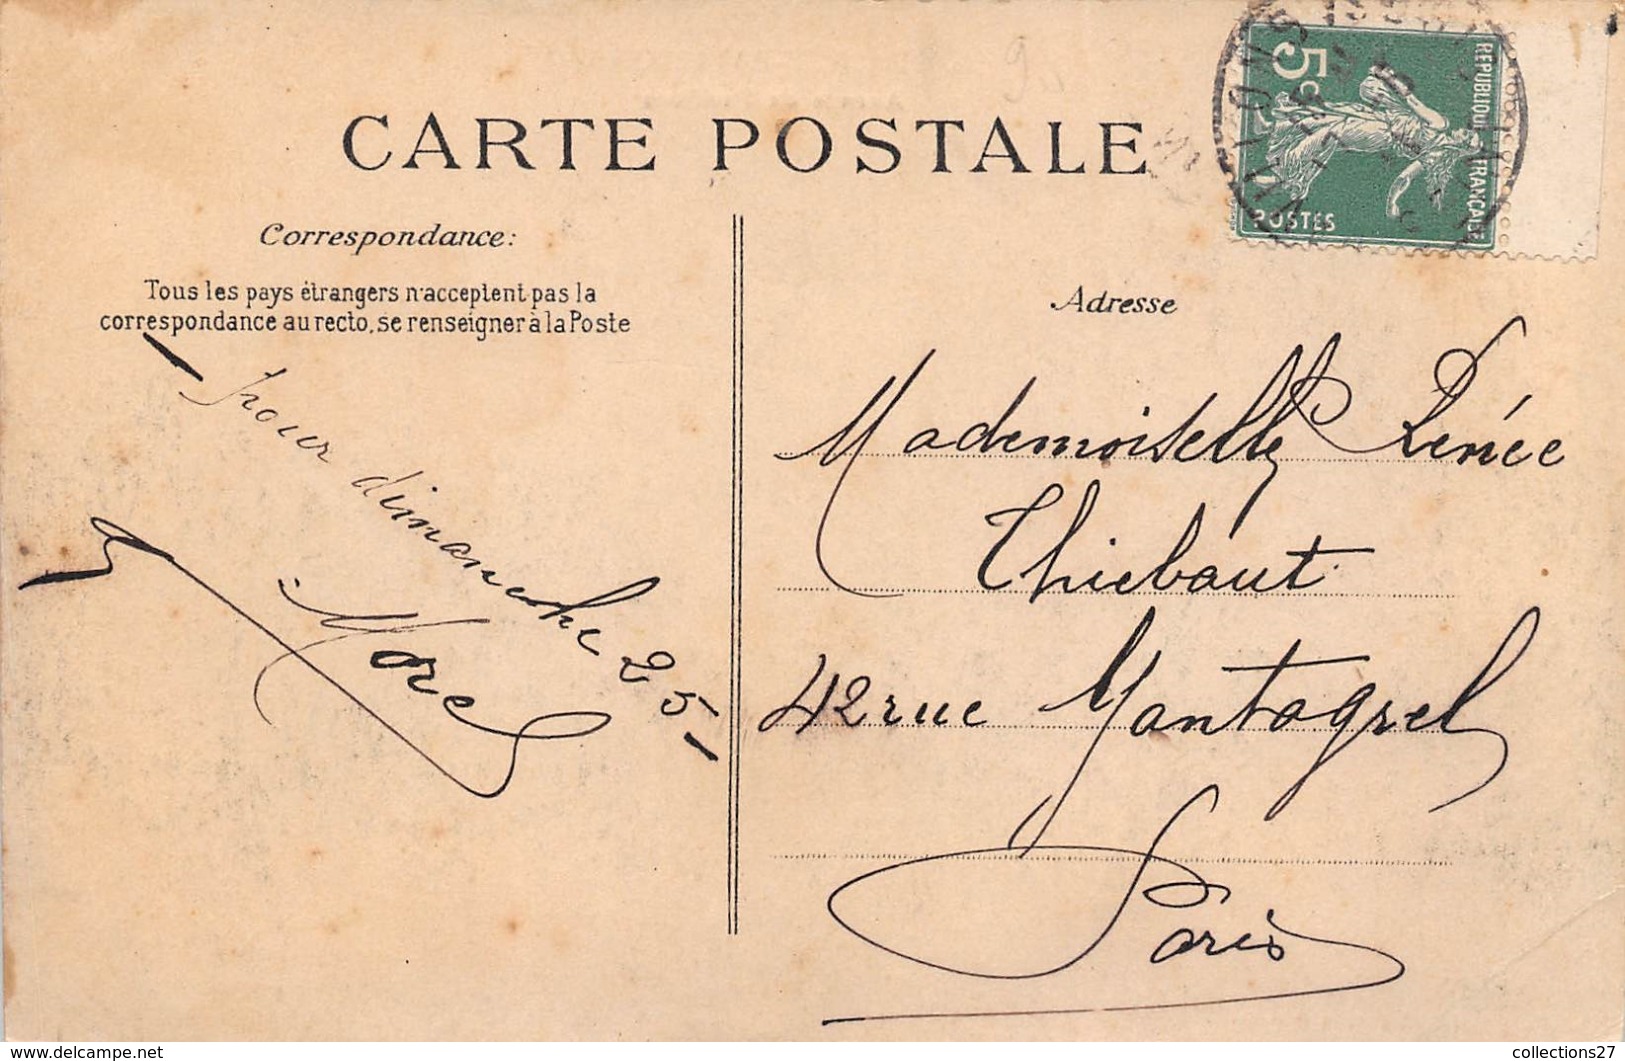 CARTE POSTALE
Correspondance:
Tous les pays étrangers n'acceptent pas la
correspondance au recto, se renseigner à la Poste
pour dimanche 25
Morel
5c
REPUBLIQUE FRANCAISE
POSTES
Adresse
Mademoiselle Renée
Thiebaut
42 rue Mantagrel
Paris
collections27